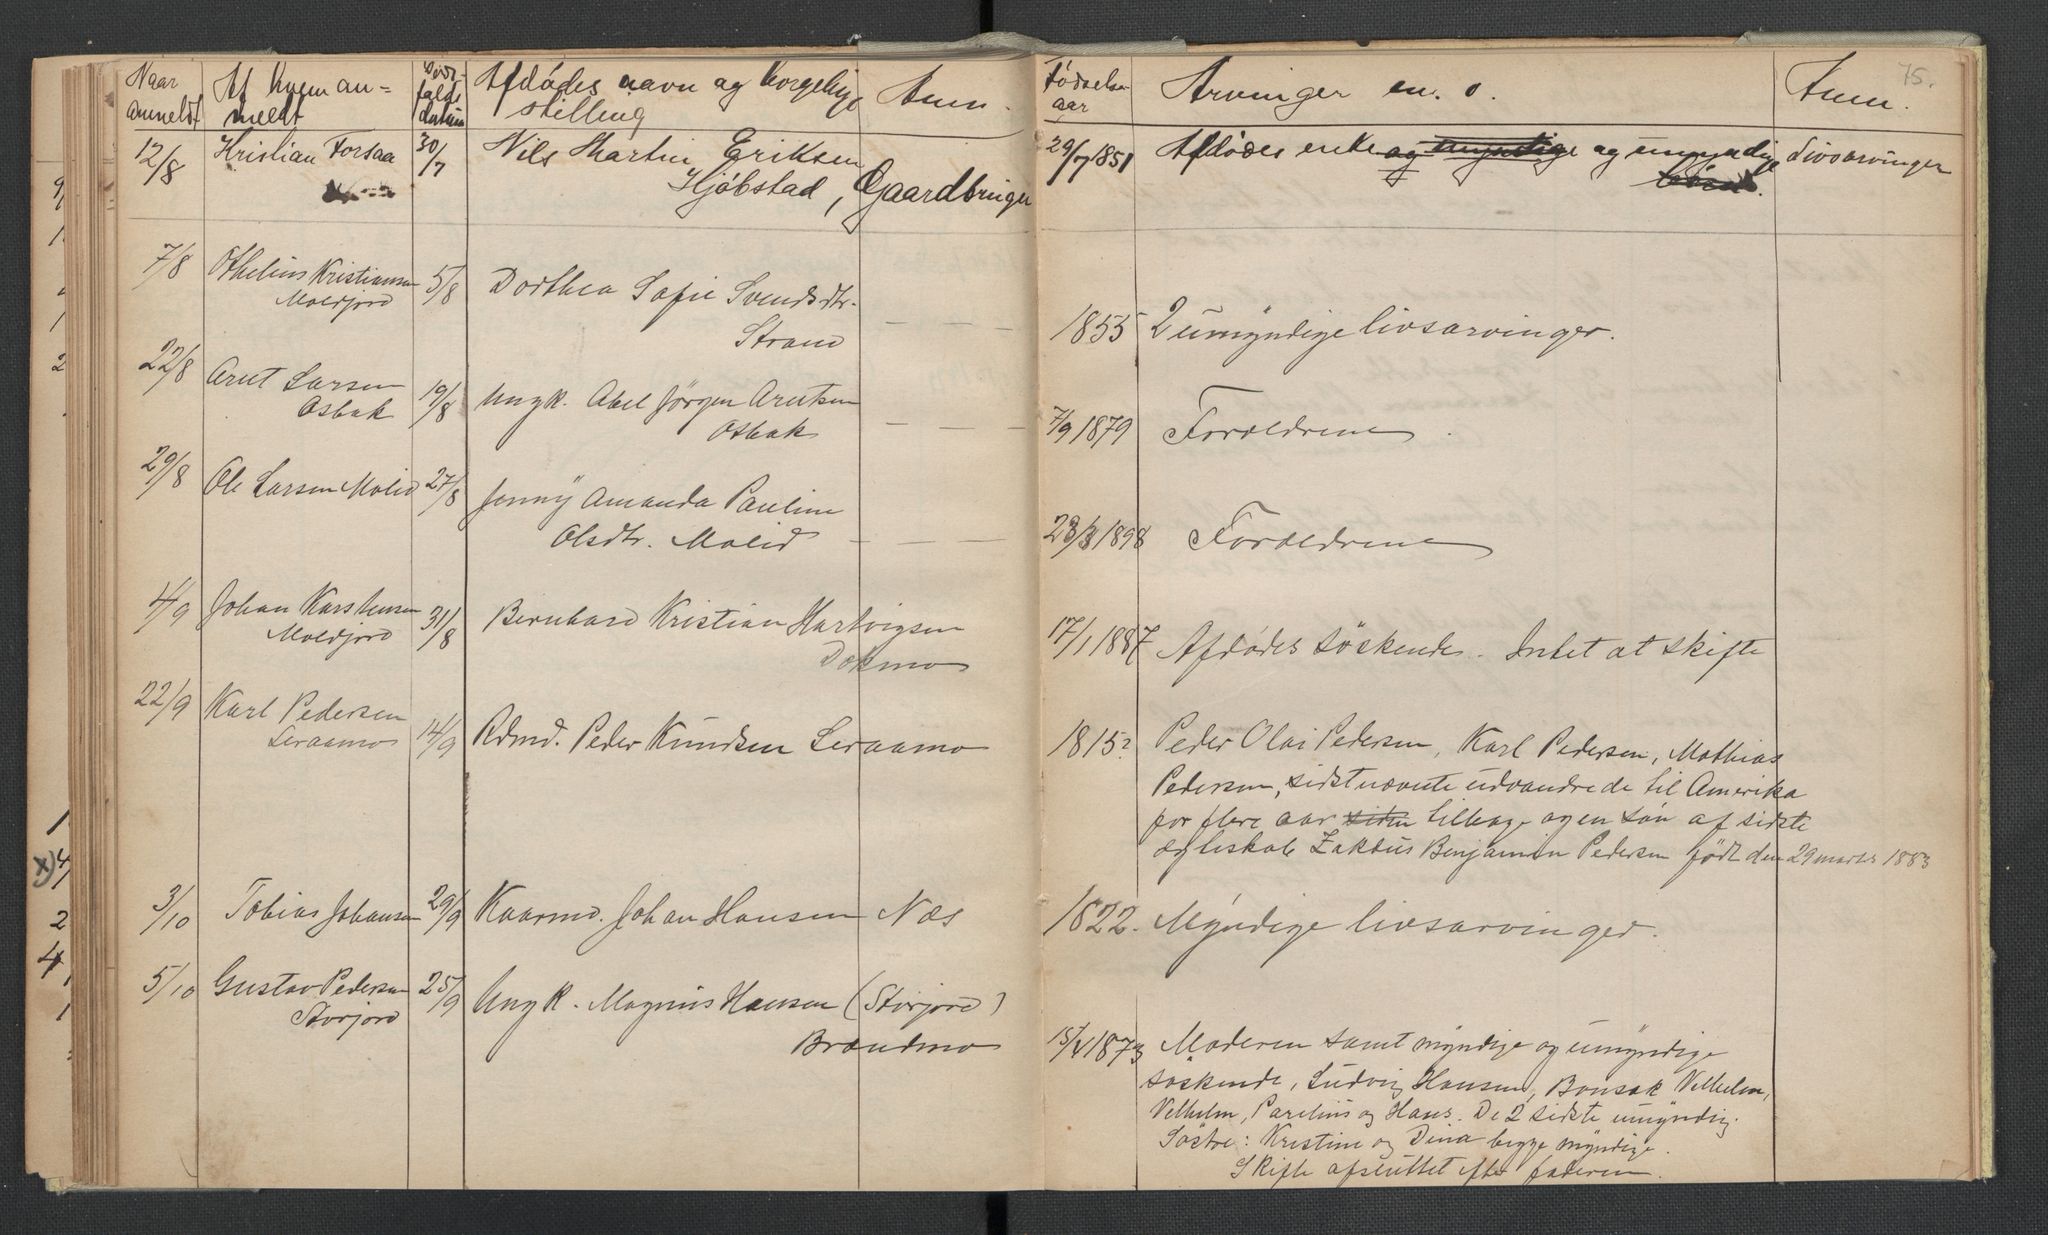 Naar anmeldt
Af hvem anmeldt
Døds-falds datum
Afdødes navn og borgelige stilling
Anm.
Fødsels-aar
Arvinger m. v.
Anm.
75.
12/8 Kristian Forsaa 30/7 Nils Martin Eriksen
Hjøbstad, Gaardbruger
29/7 1851 Afdødes enke og myndige og umyndige livsarvinger
7/8 Othelius Kristiansen 5/8 Dorthea Sofie Svendsdtr.
Moldjord
Strand
1855 2 umyndige livsarvinger.
22/8 Arnt Larsen 19/8 Ungk. Abel Jørgen Arntsen
Osbak
Osbak
7/9 1879 Forældrene.
29/8 Ole Larsen Molid 27/8 Jenny Amanda Pauline
Olsdtr. Molid
23/3 1898 Forældrene
4/9 Johan Karstensen 31/8 Bernhard Kristian Hartvigsen
Moldjord
Dokmo
17/1 1887 Afdødes søskende. Intet at skifte
22/9 Karl Pedersen 14/9 Rdmd. Peder Knudsen Leraamo
Leraamo
1815? Peder Olai Pedersen, Karl Pedersen, Mathias
Pedersen, sidstnævnte udvandrede til Amerika
for flere aar siden tilbage og en søn af sidste
ægteskab Zakæus Benjamin Pedersen født den 29 marts 1883
3/10 Tobias Johansen 29/9 Kaarmd. Johan Hansen Næs
1822. Myndige livsarvinger.
5/10 Gustav Pedersen 25/9 Ungk. Magnus Hansen (Storjord)
Storjord
Brændmo
15/4 1873 Moderen samt myndige og umyndige
søskende, Ludvig Hansen, Bonsak Velhelm,
Velhelm, Parelius og Hans. De 2 sidste umyndig.
Søstre: Kristine og Dina begge myndige.
Skifte afsluttet efter faderen.